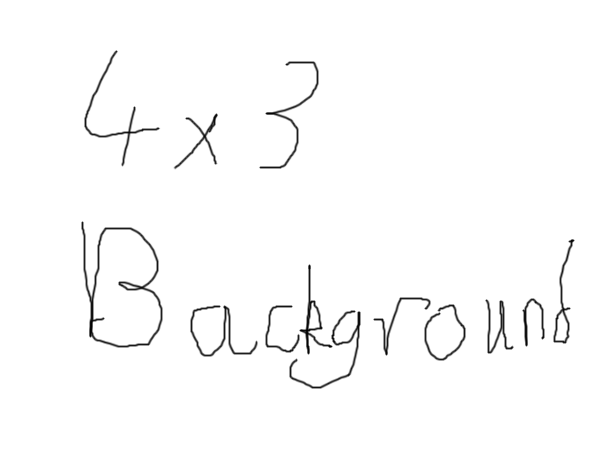 4 x 3
Background